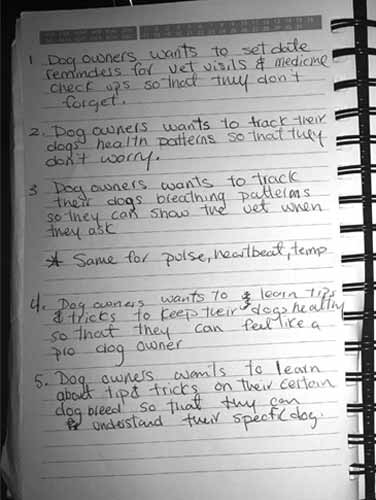 1 Dog owners wants to set date
reminders for vet visits & medicine
check ups so that they don't
forget.
2. Dog owners wants to track their
dogs health patterns so that they
don't worry.
3 Dog owners wants to track
their dogs breathing patterns
so they can show the vet when
they ask
* Same for pulse, heartbeat, temp
4. Dog owners wants to learn tips
& tricks to keep their dogs healthy
so that they can feel like a
pro dog owner
5. Dog owners wants to learn
about tips & tricks on their certain
dog breed so that they can
understand their specific dog.